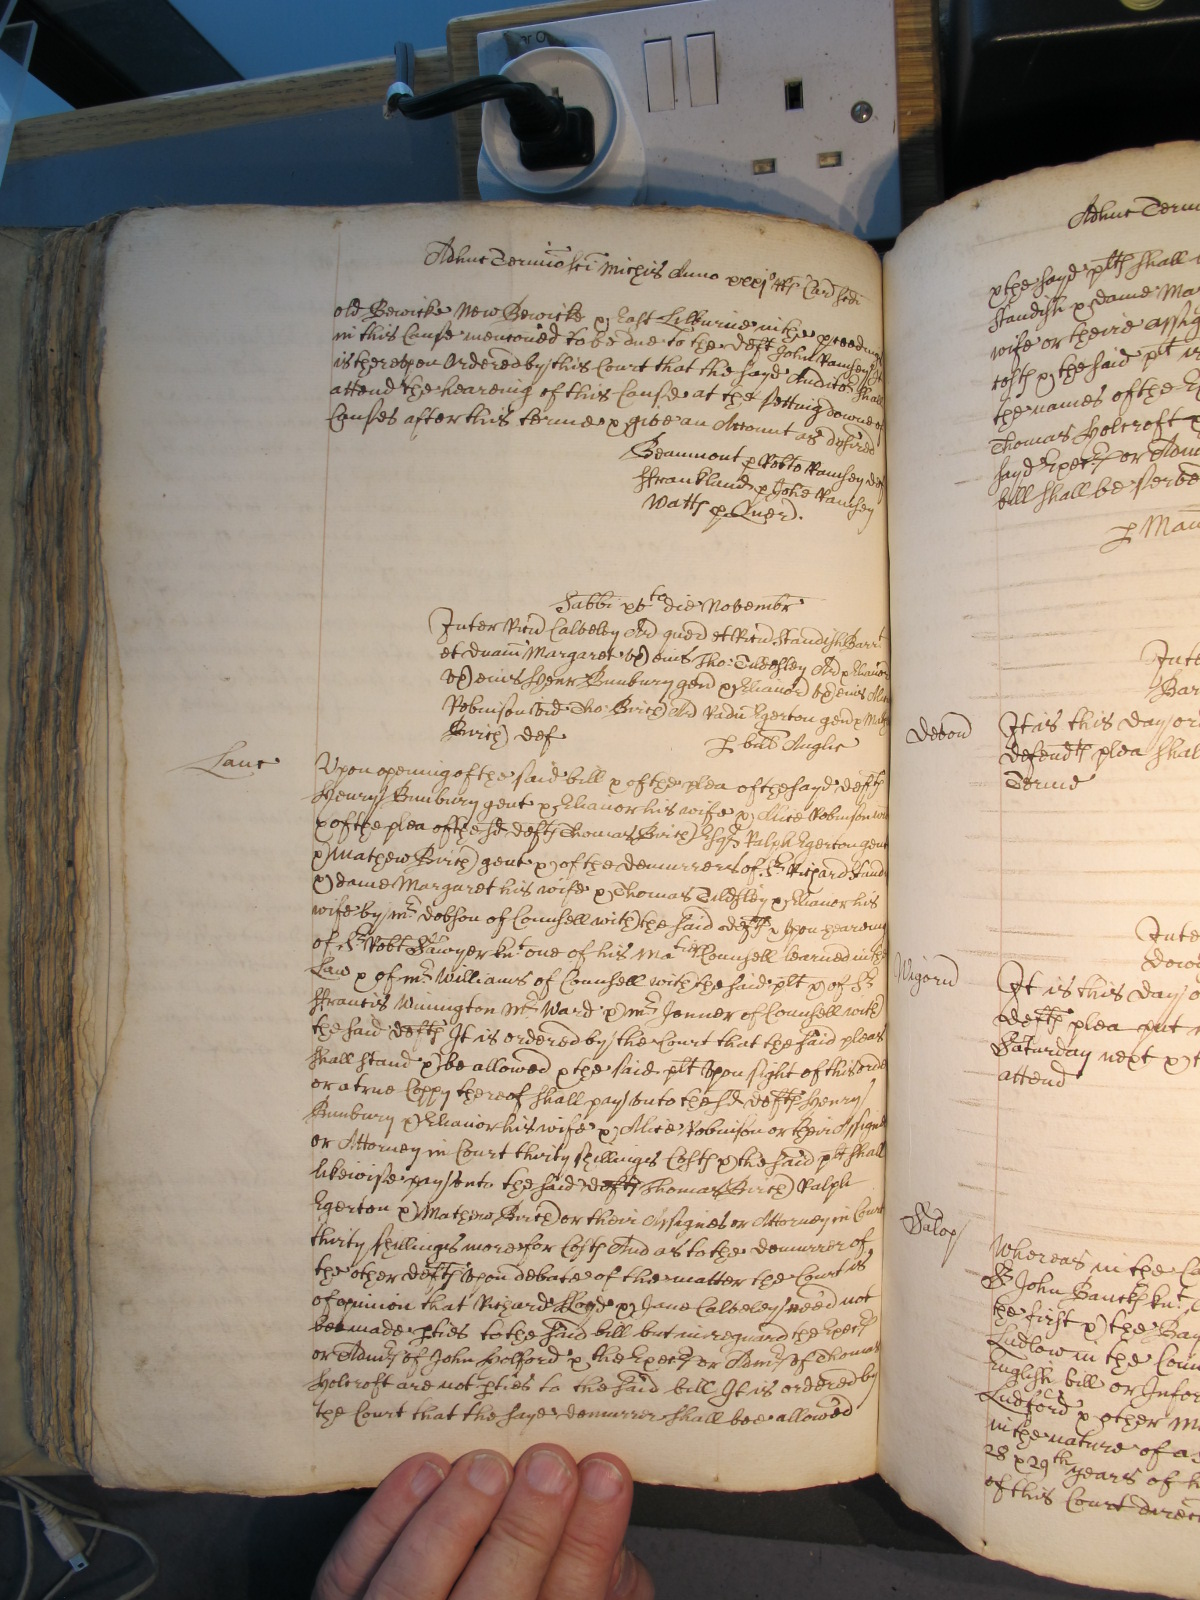 Adhuc Termio sci Michis Anno xxxj
old Bewicke New Bewicke & East Lilburne in the proceedings
in this Cause mentoned to be due to the deft John Ramsey It
is thereupon Ordered by this Court that the sayd Auditor shall
attend the hearing of this Cause at the setting downe of
Causes after this terme & give an Account as desired
Beaumont p Robto Ramsey def
ffrankland p Johe Ramsey
Watts p Quer.
Sabbi xbto die Novembr
Inter Ricu Calveley Ar quer et Ricu Standish Barrt
et Dnam Margaret ux eius Tho: Tildesley Ar & Elianor
ux eius Henr Bunbury gen & Elianor ux eius Alic
Robinson vid Tho: Birch Ar Radu Egerton gen & Math
Birch def
p bill Anglic
Lanc
Upon opening of the said bill & of the plea of the sayd defts
Henry Bunbury gent & Elianor his wife & Alice Robinson
& of the plea of the sd defts Thomas Birch Esqr Ralph Egerton gent
& Mathew Birch gent & of the demurrers of Sr Richard Standish
& dame Margaret his wife & Thomas Tildesley & Elianor his
wife by mr Dobson of Counsell with the said defts & Upon hearing
of Sr Robt Sawyer knt one of his Maties Counsell learned in the
Law & of mr Williams of Counsell with the said plt & of Sr
ffrancis Winnington Mr Ward & mr Jenner of Counsell with
the said defts It is ordered by the Court that the said pleas
shall stand & be allowed & the said plt Upon sight of this order
or a true Coppy thereof shall pay unto the sd defts Henry
Bunbury & Elianor his wife & Alice Robinson or their Assignes
or Attorney in Court thirty shillings Costs & the said plt shall
likewise pay unto the said defts Thomas Birch Ralph
Egerton & Mathew Birch or their Assignes or Attorney in Court
thirty shillings more for Costs And as to the demurrer of
the other defts Upon debate of the matter the Court is
of opinion that Richard Lloyd & Jane Calveley need not
bee made pties to the said bill but in reguard the Execrs
or Admrs of John Holford & the Execrs or Admrs of Thomas
Holcroft are not pties to the said bill It is ordered by
the Court that the sayd demurrer shall bee allowed
Adhuc Term
& the sayd plts shall
Standish & dame Mar
wife or theire assig
costs & the said plt
the names of the E
Thomas Holcroft
sayd Execrs or Adm
bill shall be serve
p
Inte
Bar
Devon
It is this day or
defendts plea shal
Terme
Inte
Wigorn
It is this day o
defts plea put
Saturday next & t
attend
Salop
Whereas in the Ca
Sr John Banckes knt
the first & the Bay
Ludlow in the Coun
English bill or Infor
Ludford & other
in the nature of a
28 & 29th years of
of this Court direct